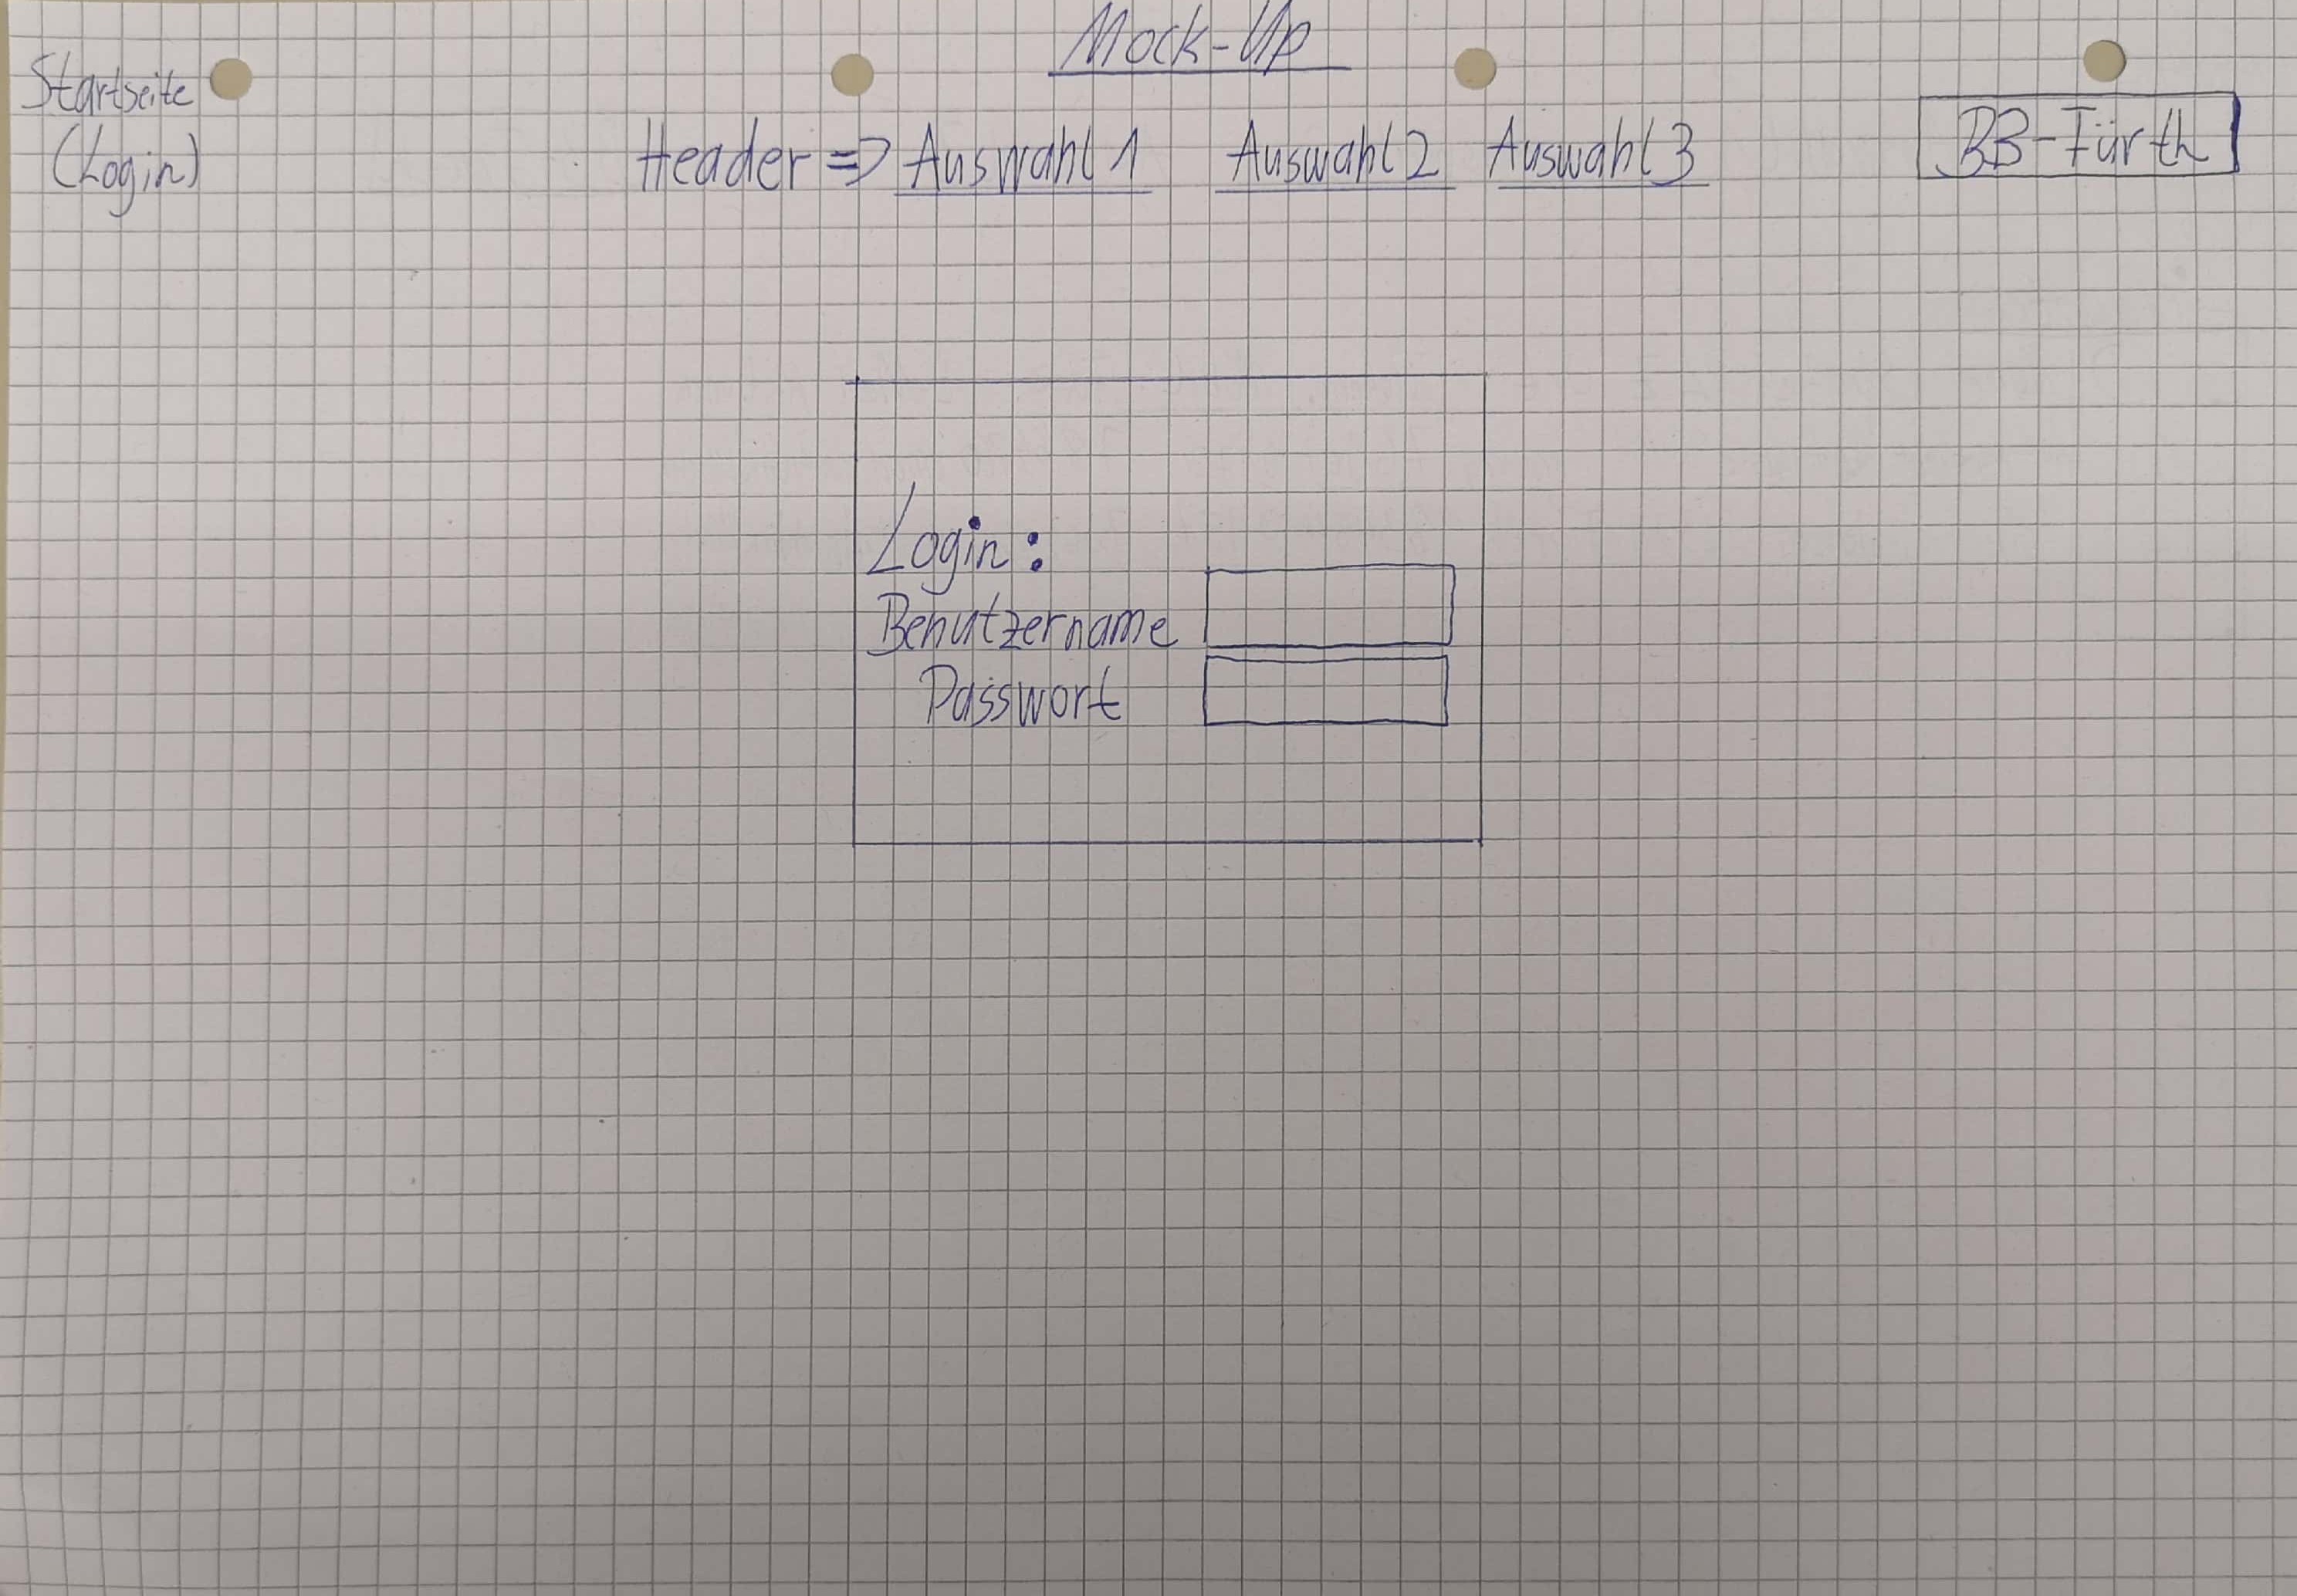 Mock-Up
Startseite
(Login)
Header => Auswahl 1 Auswahl 2 Auswahl 3
BB-Fürth
Login:
Benutzername
Passwort